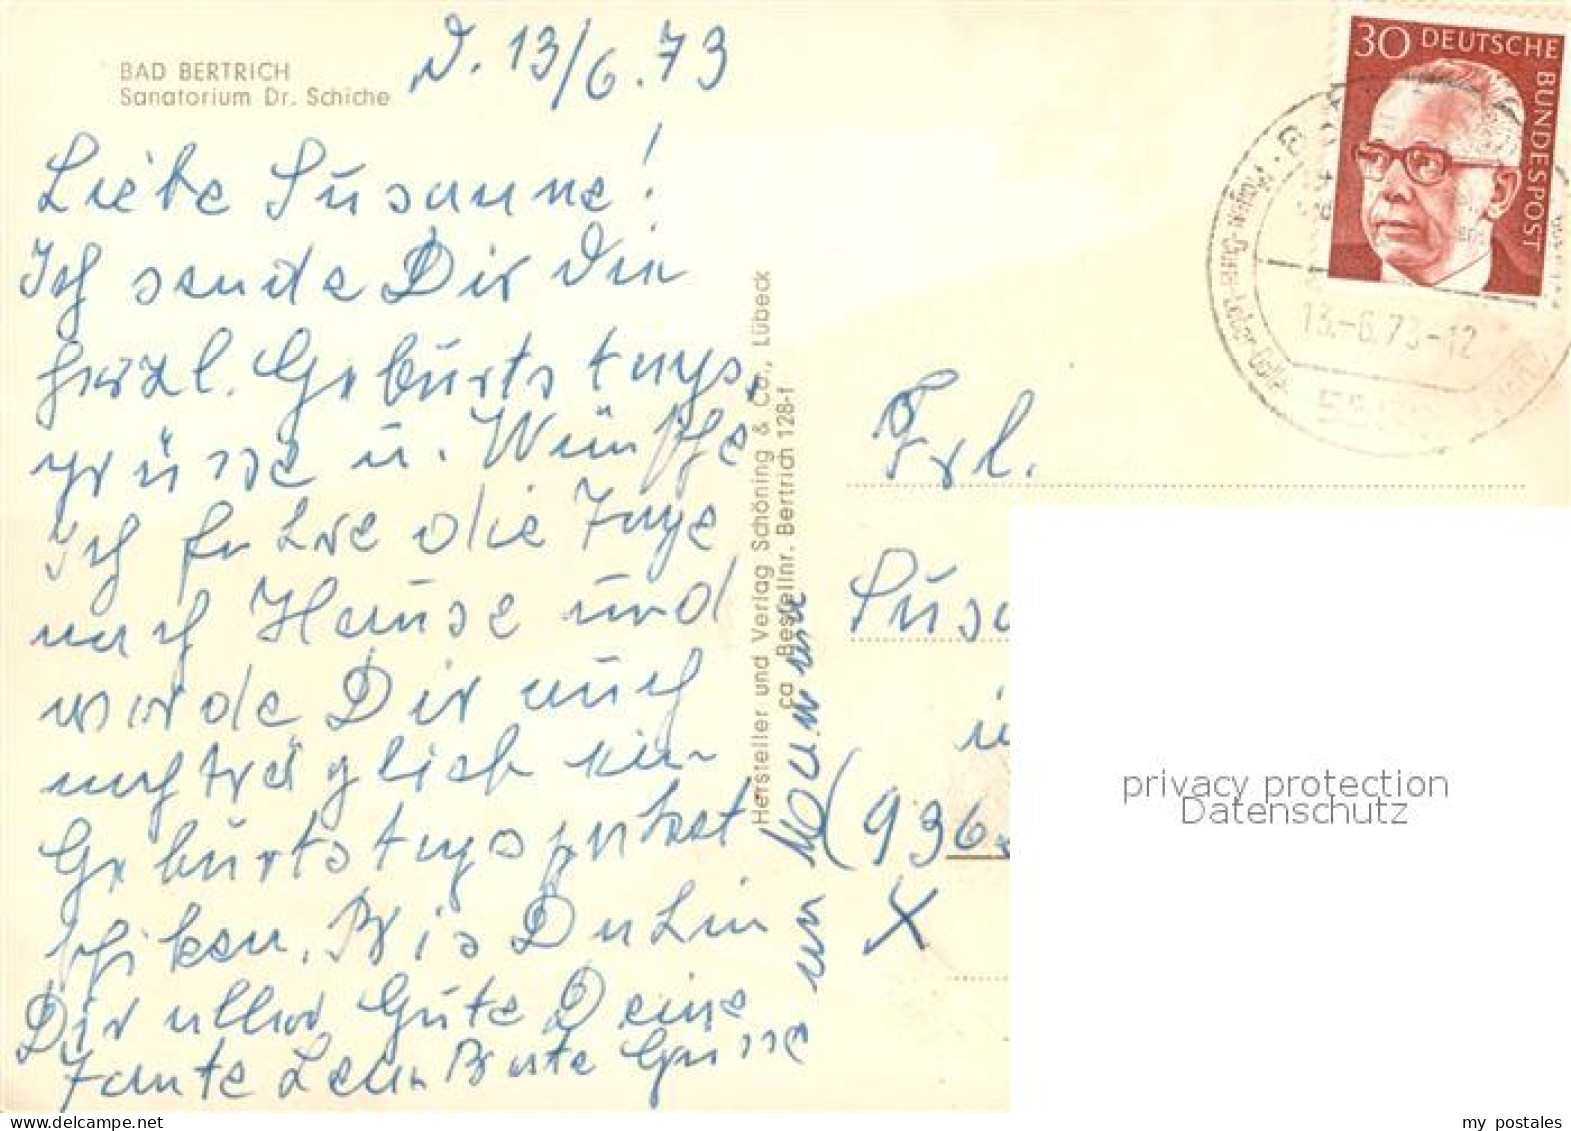 BAD BERTRICH
Sanatorium Dr. Schiche
D. 13/6.73
Liebe Susanne!
Ich sende Dir die
herzl. Geburtstags,
grüsse u. Wünsche
ich fahre die Tage
nach Hause und
werde Dir auch
nachträglich ein
Geburtstagspaket
schiken. Bis Dahin
Dir alles Gute Deine
Tante Leni Beste Grüsse
an Mama
Hersteller und Verlag Schöning & Co., Lübeck
ca Bestellnr. Bertrich 128-f
30 DEUTSCHE BUNDESPOST
Magen-Darm-Leber-Galle
13.-6.73-12
Frl.
Susa
(936
X
privacy protection
Datenschutz
www.delcampe.net
my_postales